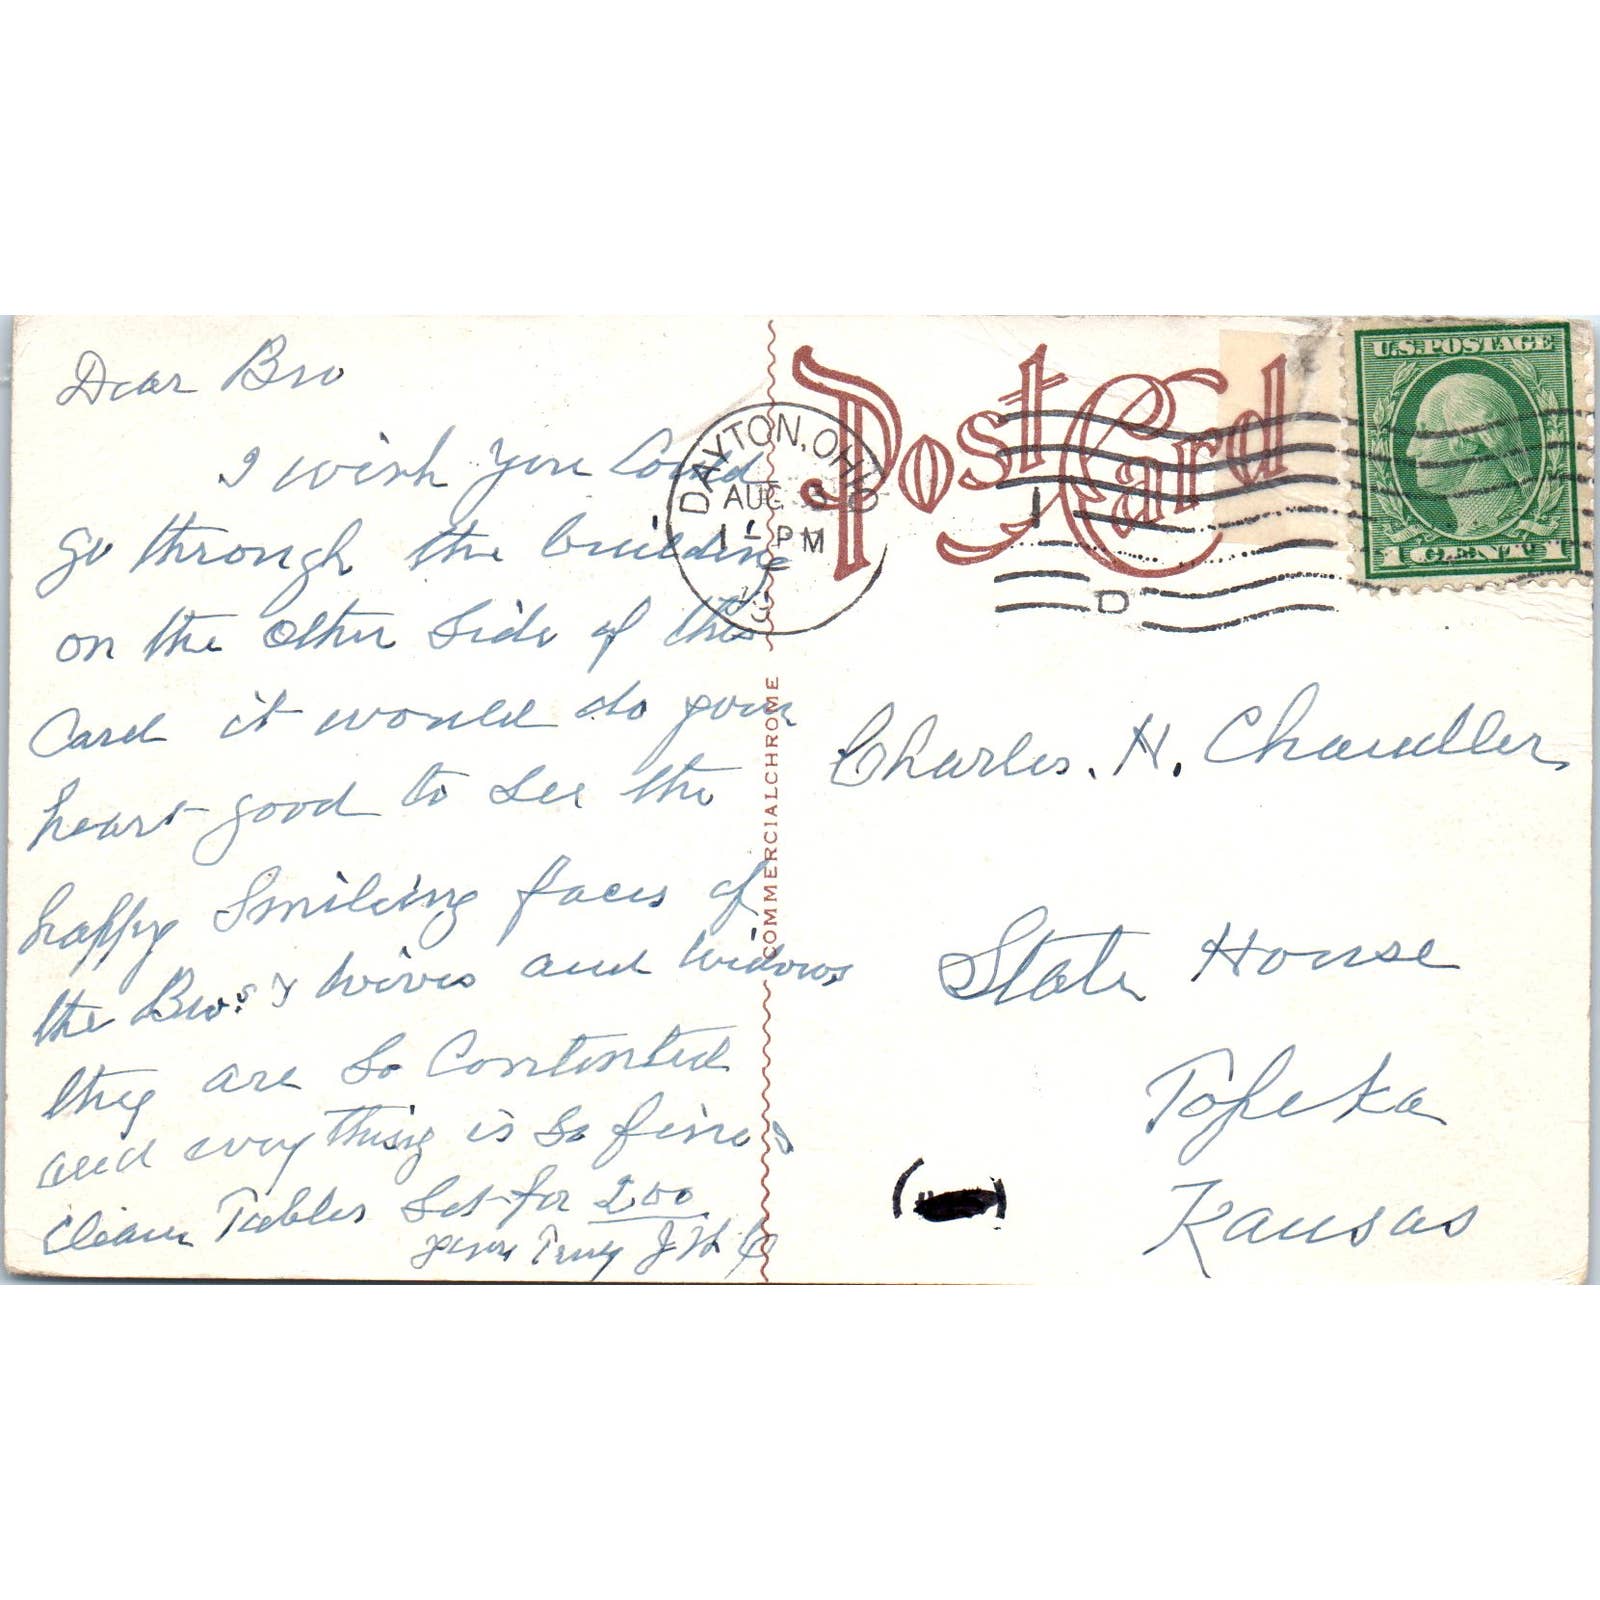 Dear Bro
I wish you Could
go through the building
on the other side of this
Card it would do your
heart good to see the
happy Smileing faces of
the Bros. & wives and widows
they are So Contented
and every thing is So fine
Clean Tables Set for 200
yours Truly J H C
Post Card
DAYTON, OHIO
AUG
1 PM
1
D
U.S. POSTAGE
1 CENT 1
COMMERCIALCHROME
Charles. H. Chandler
State House
Topeka
Kansas